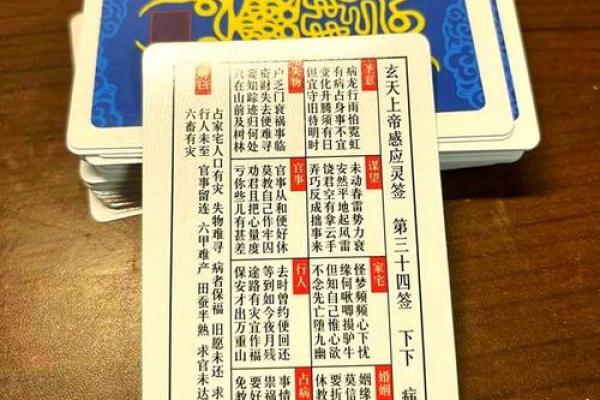 玄天上帝感应灵签 第三十四签 下下 病
圣意
病龙行雨怕霓虹
有病占身事不宜
变化升腾须有日
但宜守旧待明时
谋望
未动春雷势力衰
安然平地起风雷
饶君空有拿云手
弄巧反成拙事来
家宅
怪梦频频心下扰
缘何啾唧摸驴牛
但知自己惟心欲
不念先亡堕九幽
婚姻
姻缘
莫信
要折
休教
失物
户乏门衰祸事临
资财失去便难寻
要知踪迹归何处
只在山前及树林
官事
官事从和便好休
莫教自己作牢囚
劝君且把心量度
亏你些儿有甚差
行人
去时曾约便回还
等到如今夜月残
途路有灾宜作福
保安才出万重山
占病
事情
祟祸
要好
免教
占家宅人口有灾 失物难寻 病者保福 旧愿未还 求
行人未至 官事留连 六甲难产 田蚕半熟 求官未达
六畜有灾